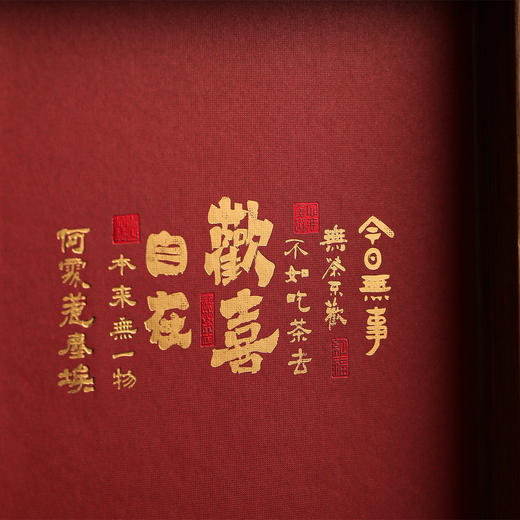 今日無事
無茶不歡
不如吃茶去
歡喜
自在
本来無一物
何處惹塵埃